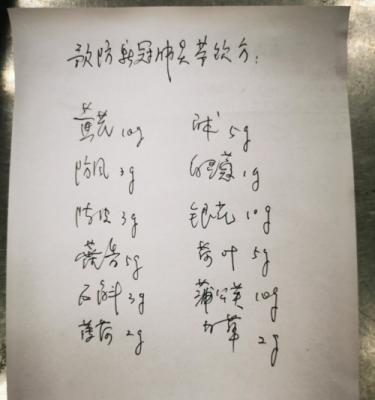 预防新冠肺炎茶饮方:
黄芪10g 白术5g
防风3g 白豆蔻1g
陈皮3g 银花10g
藿香5g 荷叶5g
石斛3g 蒲公英10g
薄荷2g 甘草2g